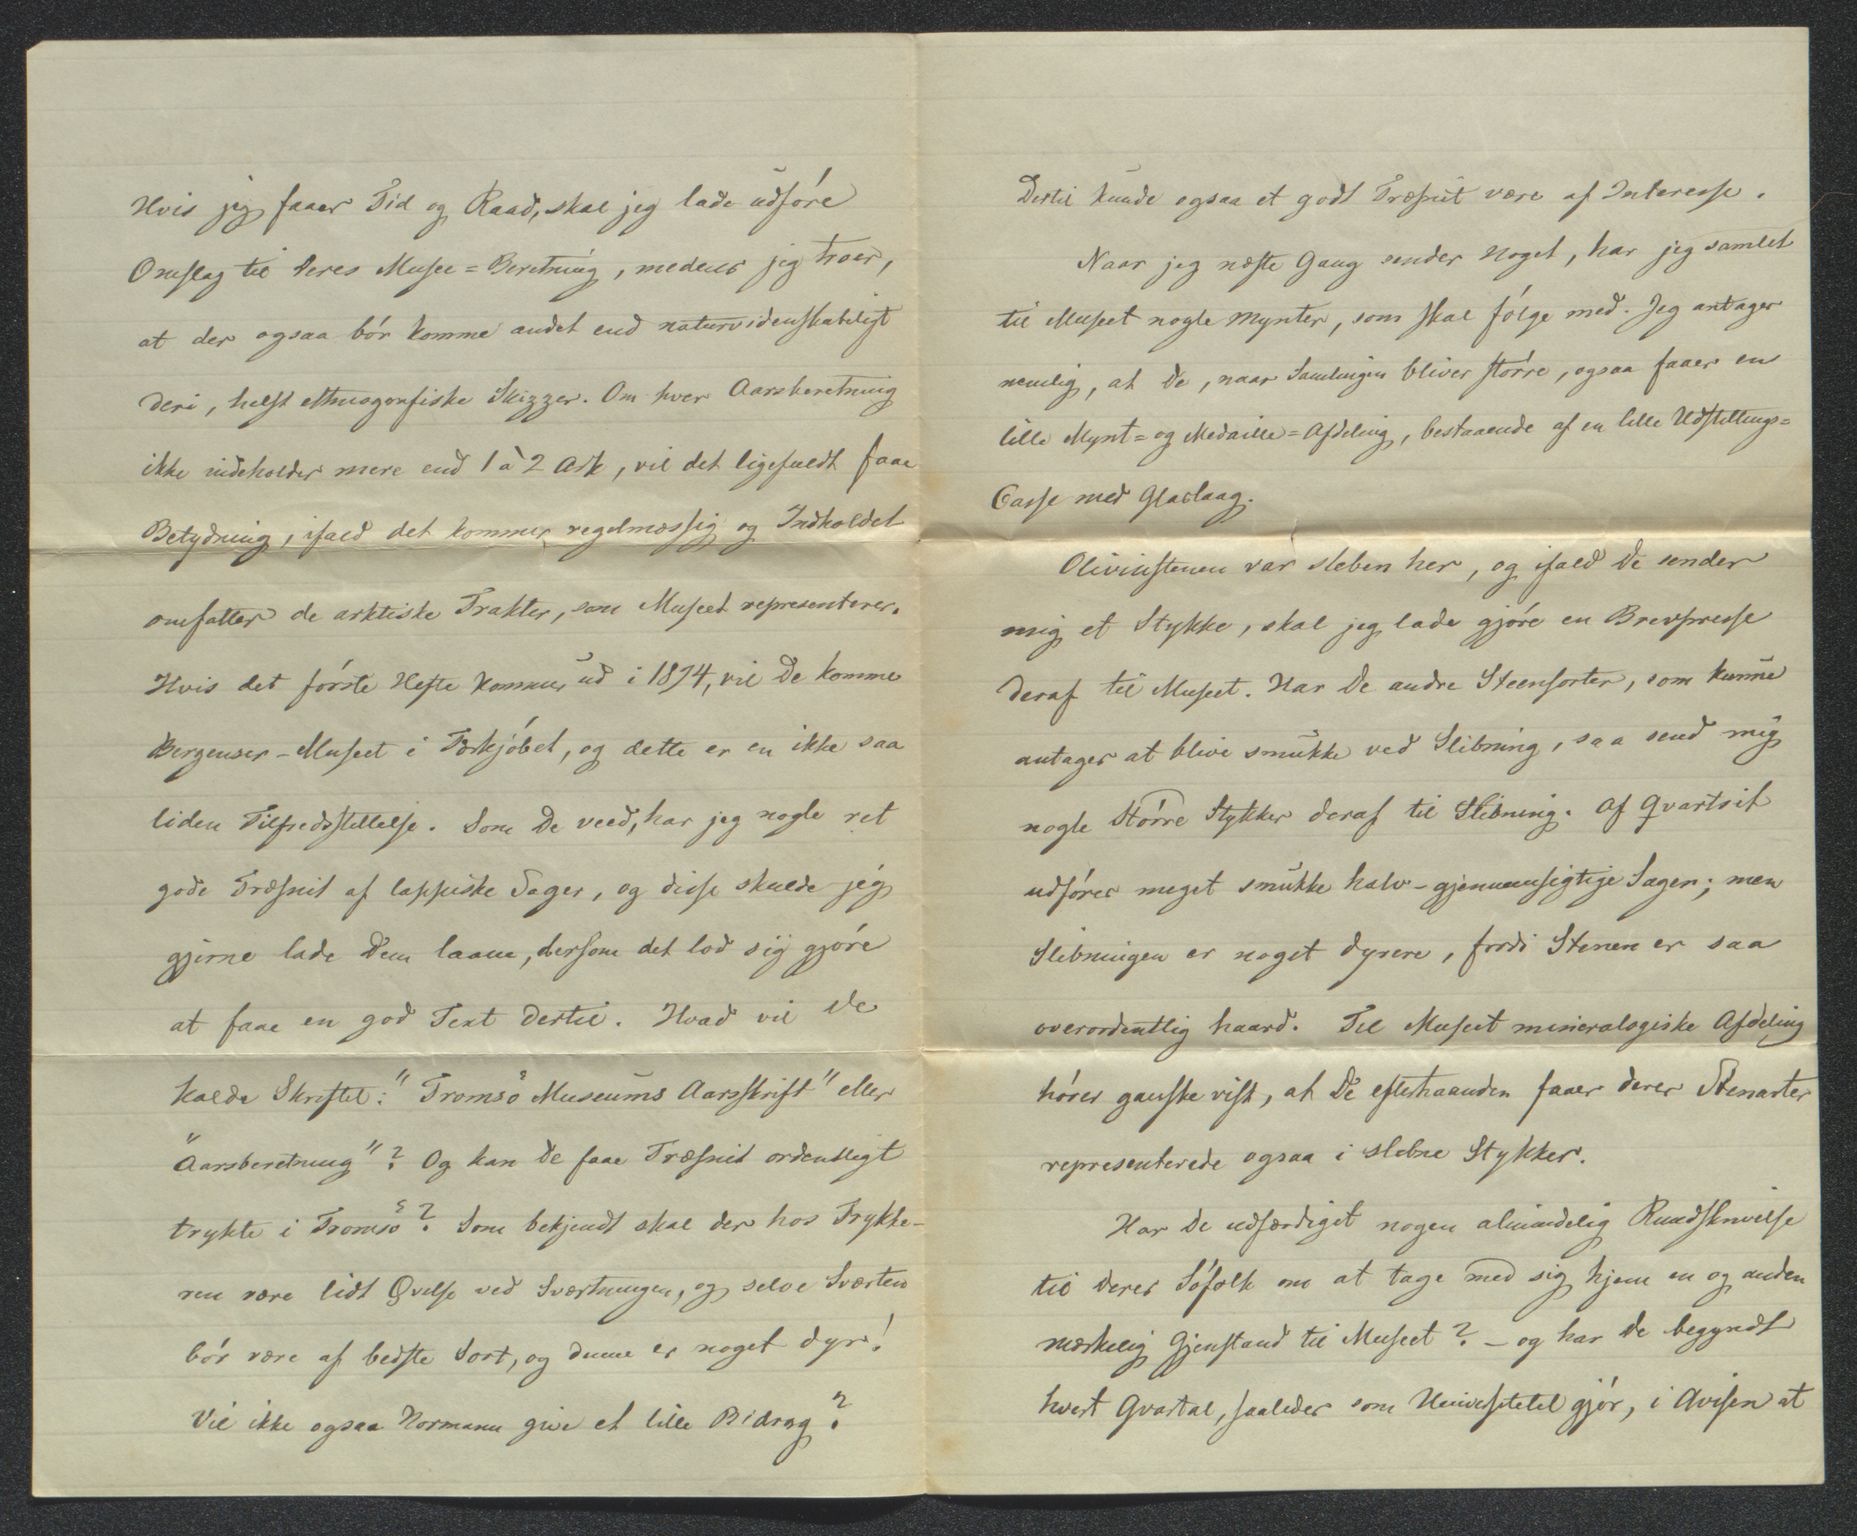 Hvis jeg faaer Tid og Raad, skal jeg lade udføre
Omslag til Deres Musee=Beretning, medens jeg troer,
at der ogsaa bør komme andet end naturvidenskabeligt
deri, helst ethnografiske Skizzer. Om hver Aarsberetning
ikke indeholder mere end 1 à 2 Ark, vil det ligefuldt faae
Betydning, ifald det kommer regelmæssig og Indholdet
omfatter de arktiske Trakter, som Museet representerer.
Hvis det første Hefte kommer ud i 1874, vil De komme
Bergenser-Museet i Forkjøbet, og dette er en ikke saa
liden Tilfredsstillelse. Som De veed, har jeg nogle ret
gode Træsnit af lappiske Sager, og disse skulde jeg
gjerne lade Dem laane, dersom det lod sig gjøre
at faae en god Text dertil. Hvad vil De
kalde Skriftet: "Tromsø Museums Aarsskrift" eller
"Aarsberetning"? Og kan De faae Træsnit ordentligt
trykte i Tromsø? Som bekjendt skal der hos Trykke-
ren være lidt Øvelse ved Sværtningen, og selve Sværten
bør være af bedste Sort, og denne er noget dyr!
Vil ikke ogsaa Normann give et lille Bidrag?
Dertil kunde ogsaa et godt Træsnit være af Interesse.
Naar jeg næste Gang sender noget, har jeg samlet
til Museet nogle Mynter, som skal følge med. Jeg antager
nemlig, at De, naar Samlingen bliver større, ogsaa faaer en
lille Mynt= og Medaille=Afdeling, bestaaende af en lille Udstillings=
Casse med Glaslaag.
Olivinstenen var sleben her, og ifald De sender
mig et Stykke, skal jeg lade gjøre en Brevpresse
deraf til Museet. Har De andre Steensorter, som kunne
antages at blive smukke ved Slibning, saa send mig
nogle større Stykker deraf til Slibning. Af Qvartsit
udføres meget smukke halv-gjennemsigtige Sager; men
Slibningen er noget dyrere, fordi Stenen er saa
overordentlig haard. Til Museet mineralogiske Afdeling
hører ganske vist, at De efterhaanden faaer deres Stenarter
representerede ogsaa i slebne Stykker.
Har De udfærdiget nogen almindelig Rundskrivelse
til Deres Søfolk om at tage med sig hjem en og anden
mærkelig Gjenstand til Museet? - og har De begyndt
hvert Qvartal, saaledes som Universitetet gjør, i Avisen at